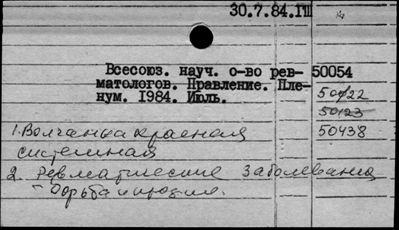 30.7.84.ГШ
Всесоюз. науч. о-во рев- 50054
матологов. Правление. Пле-
нум. 1984. Июль. 50122
50123
1. Волчанка красная 50438
системная
2. Ревматические заболевания
- борьба и профил.